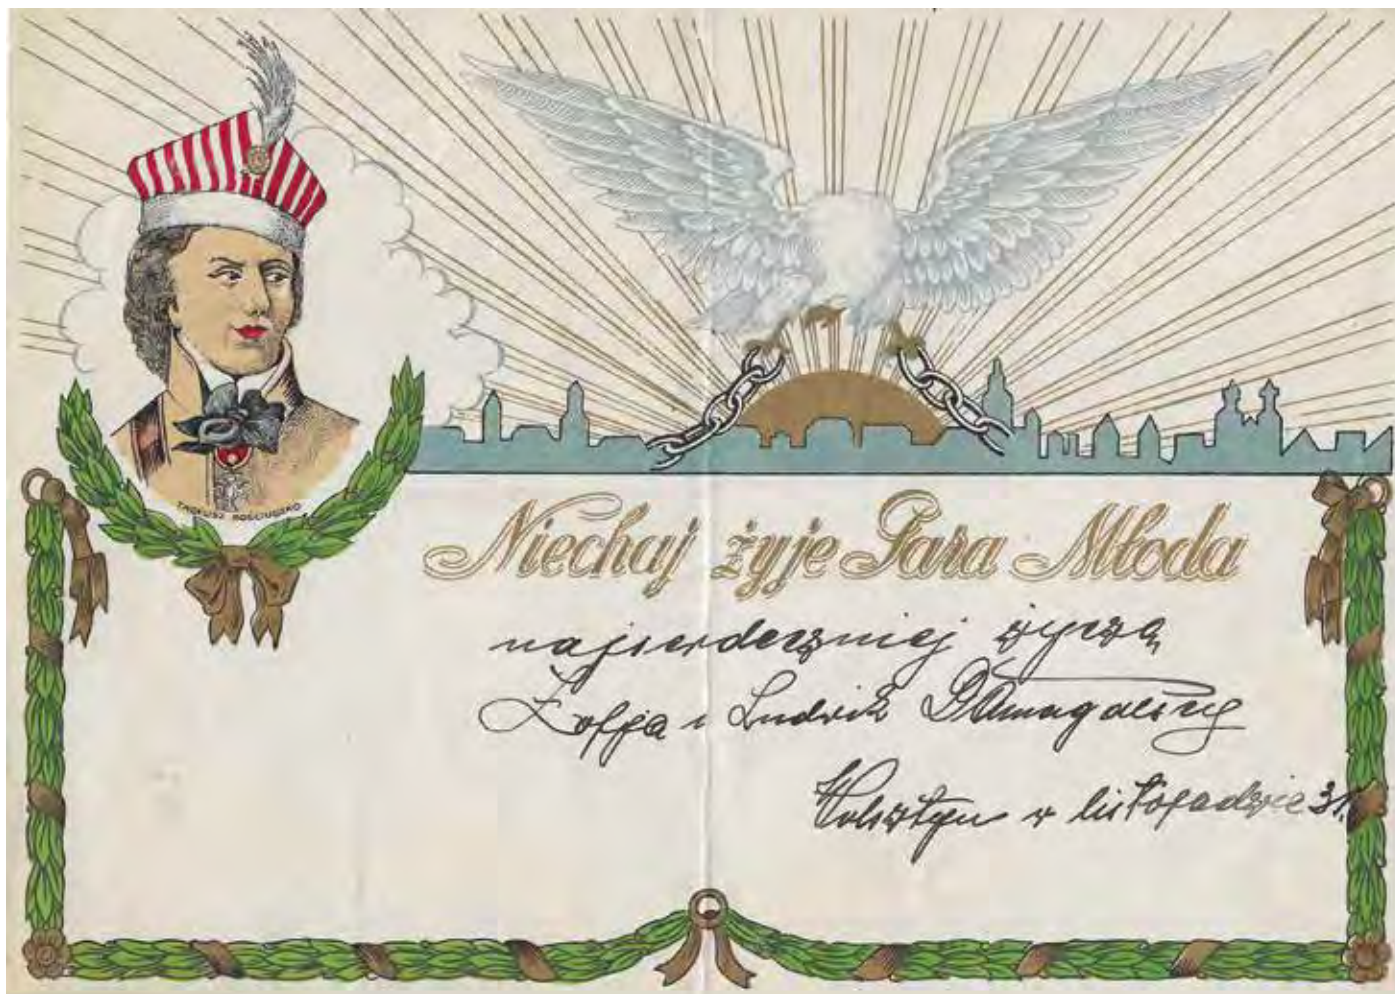 TADEUSZ KOSCIUSZKO
Niechaj żyje Para Młoda
najserdeczniej życzą
Zofja i Ludwik
Wolsztyn w listopadzie 31.